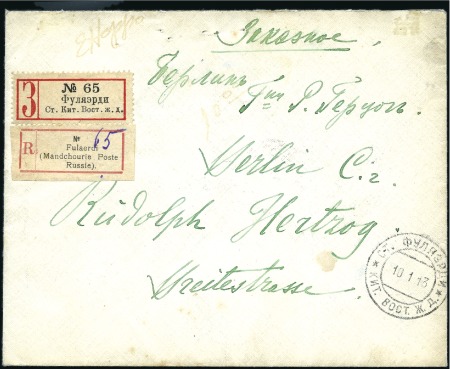 Заказное
З
№ 65
Фуляэрди
Ст. Кит. Вост. ж. д.
Берлинъ
R.
№ 65
Fulaerdi
(Mandchourie Poste
Russie).
Гну Р. Герцог.
Berlin C. 2
Rudolph Hertzog
Breitestrasse.
СТ. ФУЛЯЭРДИ
10 1 13
КИТ. ВОСТ. Ж. Д.